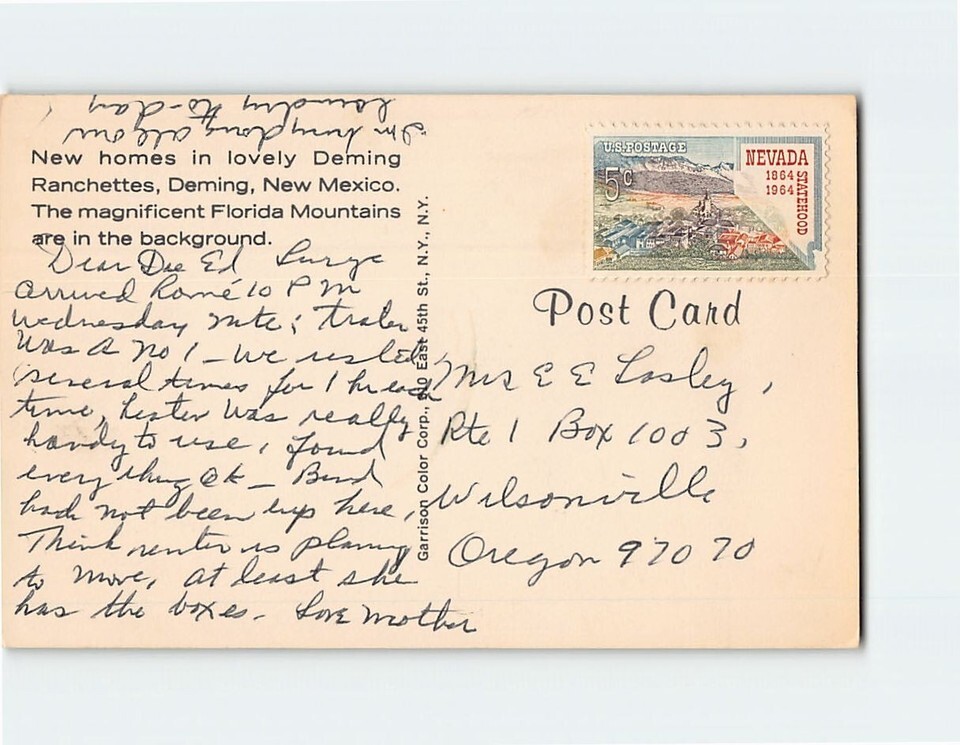 New homes in lovely Deming
Ranchettes, Deming, New Mexico.
The magnificent Florida Mountains
are in the background.
Dear Ed
arrived home 10 PM
Wednesday nite; trailer
was a no 1 - we rested
several times for 1 hr each
time, heater was really
handy to use, found
everything ok -
had not been up here,
Think renter is planing
to move, at least she
has the boxes. Love Mother
I'm doing all our
laundry to-day
Garrison Color Corp., East 45th St., N.Y., N.Y.
U.S. POSTAGE
5c
NEVADA
1864
1964
STATEHOOD
Post Card
Mrs E E Lasley,
Rte 1 Box 1003,
Wilsonville
Oregon 97070